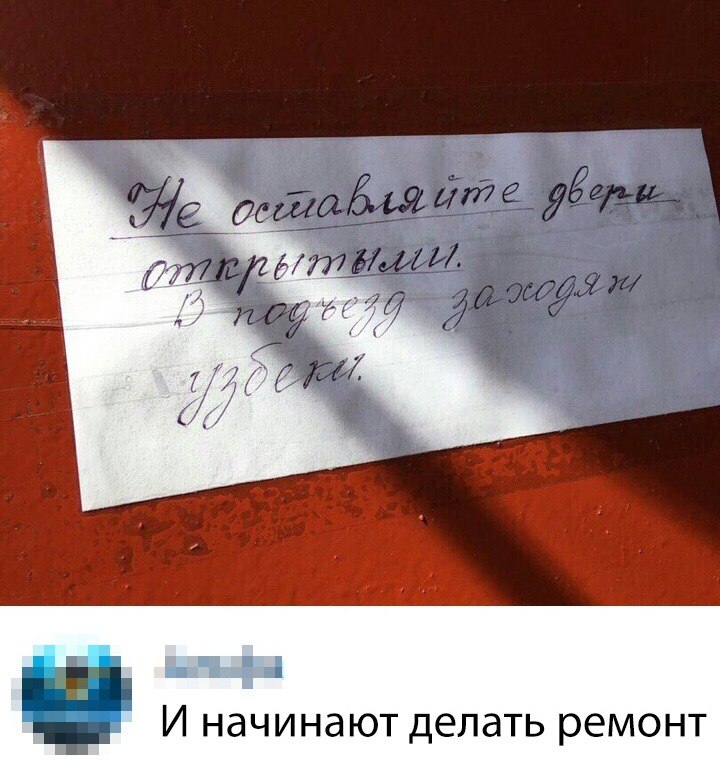 Не оставляйте двери
открытыми.
В подъезд заходят
узбеки.
И начинают делать ремонт